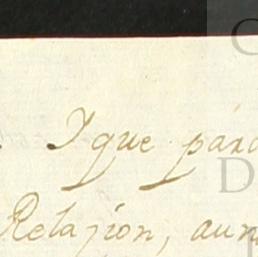 I que para
Relazion, aun